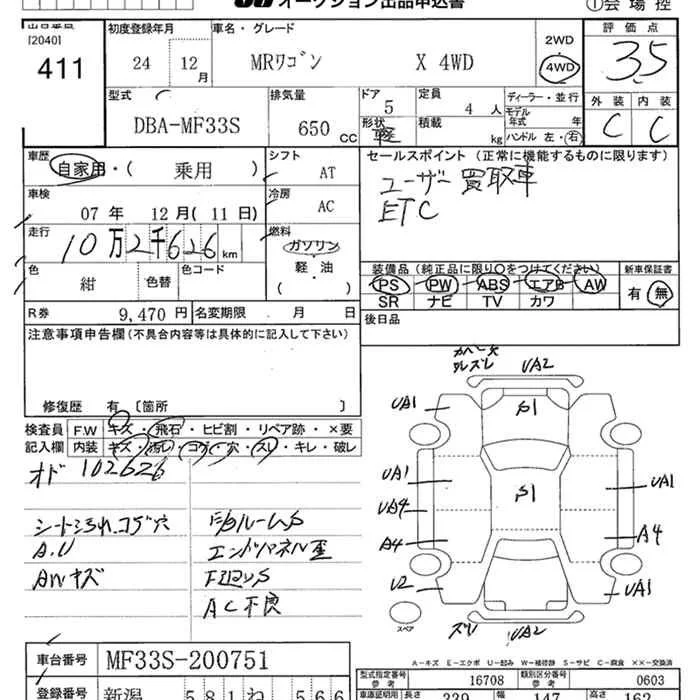 オークション出品申込書
①会場控
出品番号
[2040]
411
初度登録年月
24 12月
車名・グレード
MRワゴン X 4WD
2WD
4WD
評価点
3.5
型式
DBA-MF33S
排気量
650 CC
ドア
5
形状
軽
定員
4 人
積載
kg
ディーラー・並行
モデル年式 年
ハンドル 左・右
外装 内装
C C
車歴
自家用・( 乗用 )
シフト
AT
車検
07年 12月(11日)
冷房
AC
走行
10万2千626km
燃料
ガソリン
軽・油
( )
色
紺
色替
色コード
R券
9,470円
名変期限 月 日
セールスポイント(正常に機能するものに限ります)
ユーザー買取車
ETC
装備品(純正品に限り○をつけてください)
PS PW ABS エアB AW
SR ナビ TV カワ
新車保証書
有・無
後日品
注意事項申告欄(不具合内容等は具体的に記入して下さい)
修復歴 有〔箇所 〕
検査員記入欄
F.W キズ・飛石・ヒビ割・リペア跡・×要
内装 キズ・汚レ・コゲ・穴・スレ・キレ・破レ
オド 102626
シート汚れ、コゲ穴
A.U
AWキズ
エンドパネル歪
AC不良
UA2
UA1
S1
UA1
UA4
A4
S1
UA1
A4
U2
UA1
スペア
ズレ
UA2
A-キズ E-エクボ U-凹み W-補修跡 S-サビ C-腐食 ××-交換済
車台番号
MF33S-200751
型式指定番号 参考
16708
類別区分番号 参考
0603
登録番号
新潟 581 ね 566
車庫証明用
長さ
339
幅
147
高さ
162